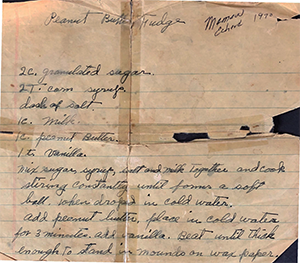 Peanut Butter Fudge
2c. granulated sugar.
2T. corn syrup.
dash of salt
1c. Milk.
1c. peanut Butter.
1 t. vanilla.
Mix sugar, syrup, salt and milk Together and cook
stirring constantly until forms a soft
ball when droped in cold water.
add peanut butter, place in cold water
for 3 minutes. add vanilla. Beat until thick
enough to stand in mounds on wax paper.